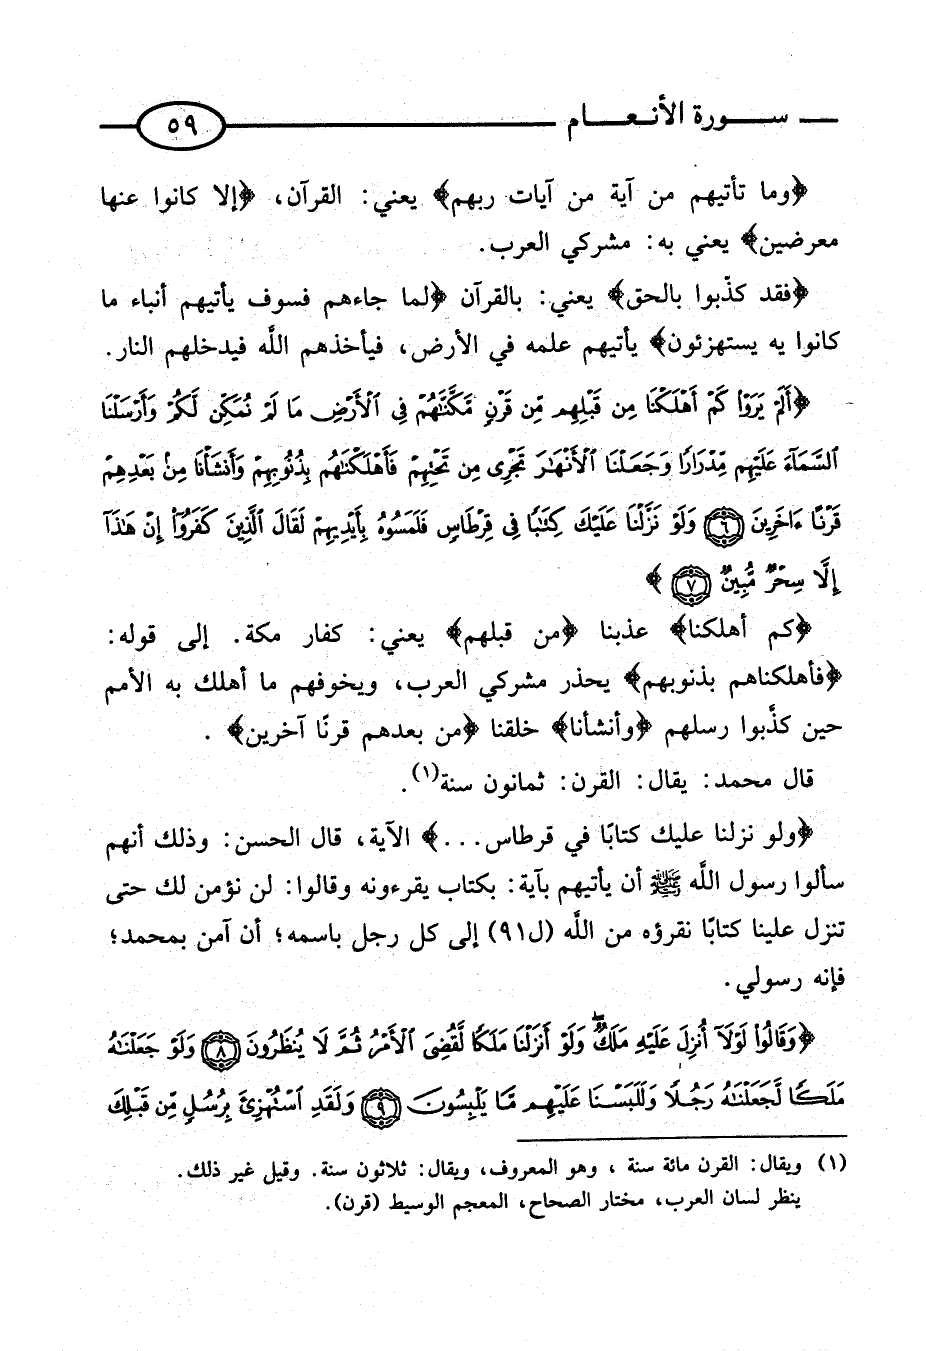 سورة الأنعام ٥٩
﴿وما تأتيهم من آية من آيات ربهم﴾ يعني: القرآن، ﴿إلا كانوا عنها
معرضين﴾ يعني به: مشركي العرب.
﴿فقد كذّبوا بالحق﴾ يعني: بالقرآن ﴿لما جاءهم فسوف يأتيهم أنباء ما
كانوا يه يستهزئون﴾ يأتيهم علمه في الأرض، فيأخذهم اللَّه فيدخلهم النار.
﴿أَلَمْ يَرَوْا۟ كَمْ أَهْلَكْنَا مِن قَبْلِهِم مِّن قَرْنٍ مَّكَّنَّٰهُمْ فِى ٱلْأَرْضِ مَا لَمْ نُمَكِّن لَّكُمْ وَأَرْسَلْنَا
ٱلسَّمَآءَ عَلَيْهِم مِّدْرَارًا وَجَعَلْنَا ٱلْأَنْهَٰرَ تَجْرِى مِن تَحْتِهِمْ فَأَهْلَكْنَٰهُم بِذُنُوبِهِمْ وَأَنشَأْنَا مِنۢ بَعْدِهِمْ
قَرْنًا ءَاخَرِينَ ٦ وَلَوْ نَزَّلْنَا عَلَيْكَ كِتَٰبًا فِى قِرْطَاسٍ فَلَمَسُوهُ بِأَيْدِيهِمْ لَقَالَ ٱلَّذِينَ كَفَرُوٓا۟ إِنْ هَٰذَآ
إِلَّا سِحْرٌ مُّبِينٌ ٧ ﴾
﴿كم أهلكنا﴾ عذبنا ﴿من قبلهم﴾ يعني: كفار مكة. إلى قوله:
﴿فأهلكناهم بذنوبهم﴾ يحذر مشركي العرب، ويخوفهم ما أهلك به الأمم
حين كذَّبوا رسلهم ﴿وأنشأنا﴾ خلقنا ﴿من بعدهم قرنًا آخرين﴾ .
قال محمد: يقال: القرن: ثمانون سنة(١).
﴿ولو نزلنا عليك كتابًا في قرطاس...﴾ الآية، قال الحسن: وذلك أنهم
سألوا رسول اللَّه ﷺ أن يأتيهم بآية: بكتاب يقرءونه وقالوا: لن نؤمن لك حتى
تنزل علينا كتابًا نقرؤه من اللَّه (ل٩١) إلى كل رجل باسمه؛ أن آمن بمحمد؛
فإنه رسولي.
﴿وَقَالُوا۟ لَوْلَآ أُنزِلَ عَلَيْهِ مَلَكٌ ۖ وَلَوْ أَنزَلْنَا مَلَكًا لَّقُضِىَ ٱلْأَمْرُ ثُمَّ لَا يُنظَرُونَ ٨ وَلَوْ جَعَلْنَٰهُ
مَلَكًا لَّجَعَلْنَٰهُ رَجُلًا وَلَلَبَسْنَا عَلَيْهِم مَّا يَلْبِسُونَ ٩ وَلَقَدِ ٱسْتُهْزِئَ بِرُسُلٍ مِّن قَبْلِكَ
(١) ويقال: القرن مائة سنة ، وهو المعروف، ويقال: ثلاثون سنة. وقيل غير ذلك.
ينظر لسان العرب، مختار الصحاح، المعجم الوسيط (قرن).